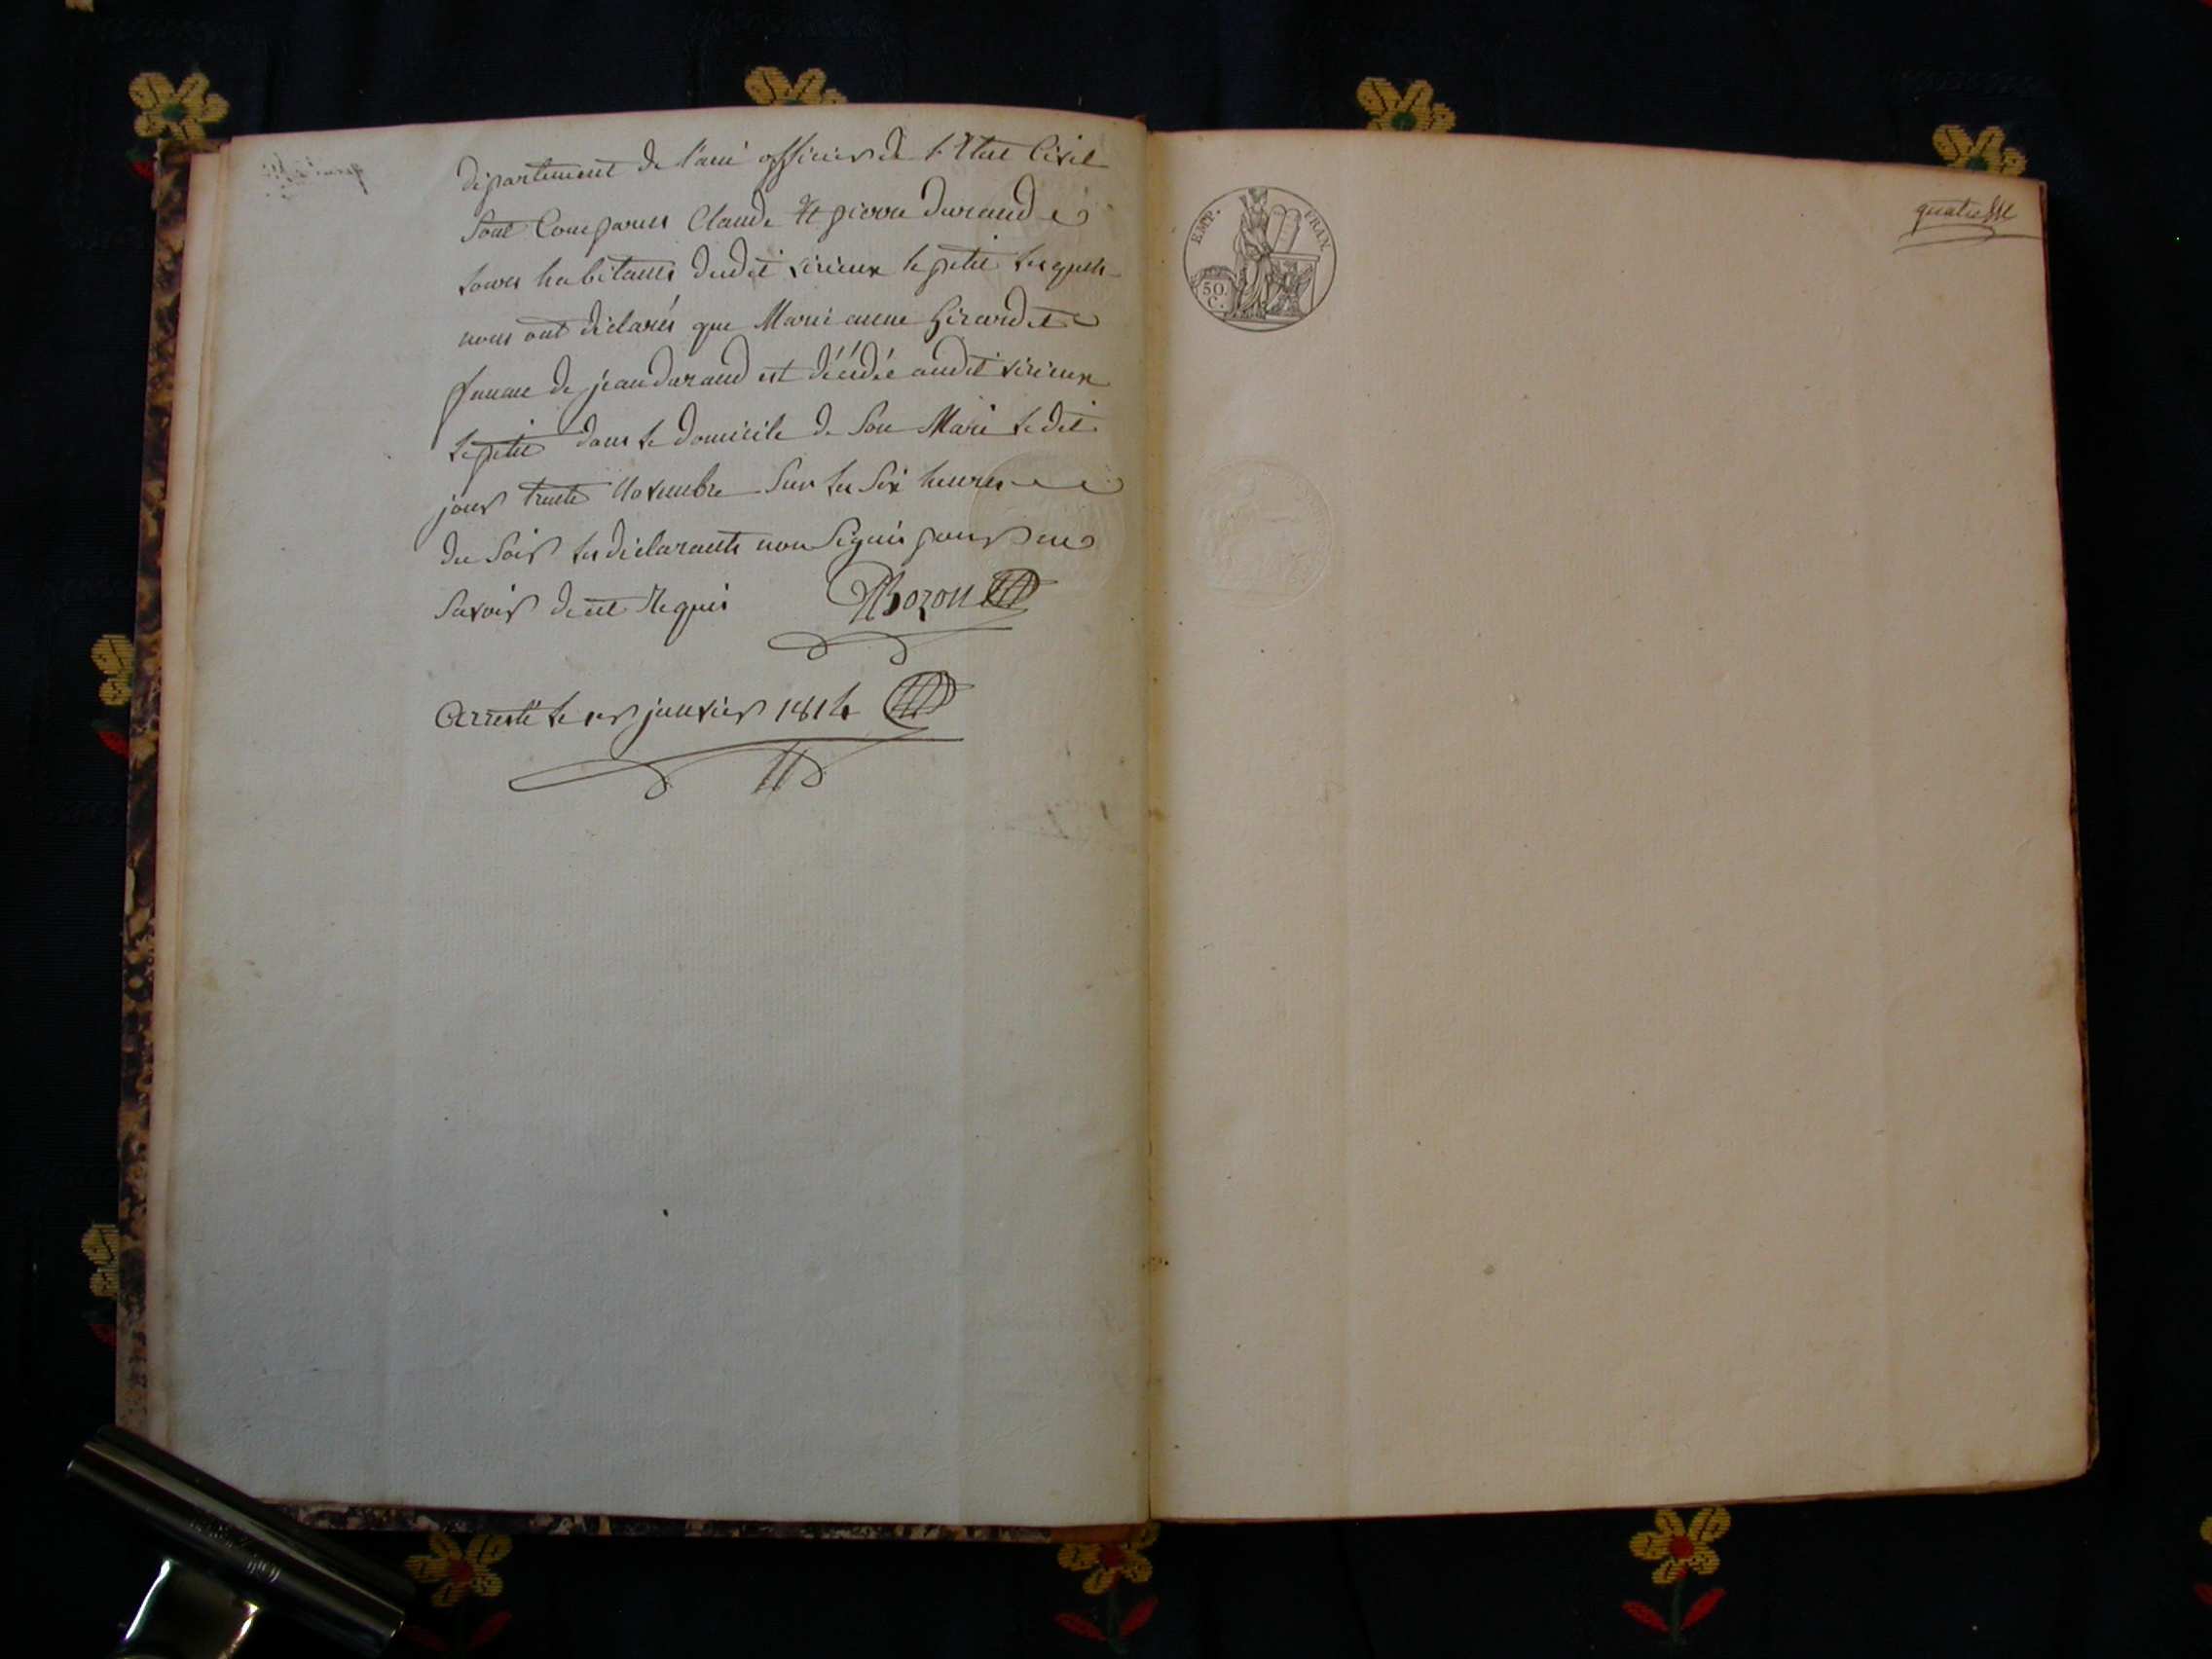 département de l'ain officier de l'Etat Civil
sont Comparus Claude Et pierre durand
tous habitants dudit virieux le petit lesquels
nous ont déclarés que Marie anne Girardet
femme de jean durand est décédée audit virieux
le petit dans le domicile de Son Mari le dit
jour trente Novembre Sur les Six heures
du Soir les déclarants non Signés pour ne
Savoir de ce Requis
Bozon
Arresté le 1er janvier 1814
EMP. FRAN.
50.
C.